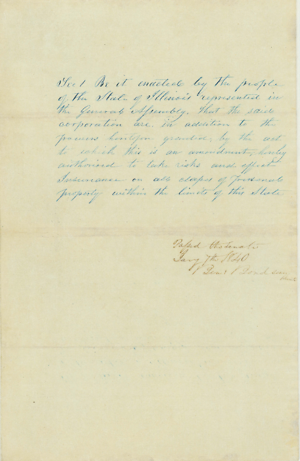 Sec 1 Be it enacted by the people
of the State of Illinois represented in
the General Assembly, That the said
corporation are, in addition to the
powers heretofore granted, by the act
to which this is an amendment, hereby
authorised to take risks and effect
Insurance on all
property within the limits of this State
Passed
Jany 7th 1840